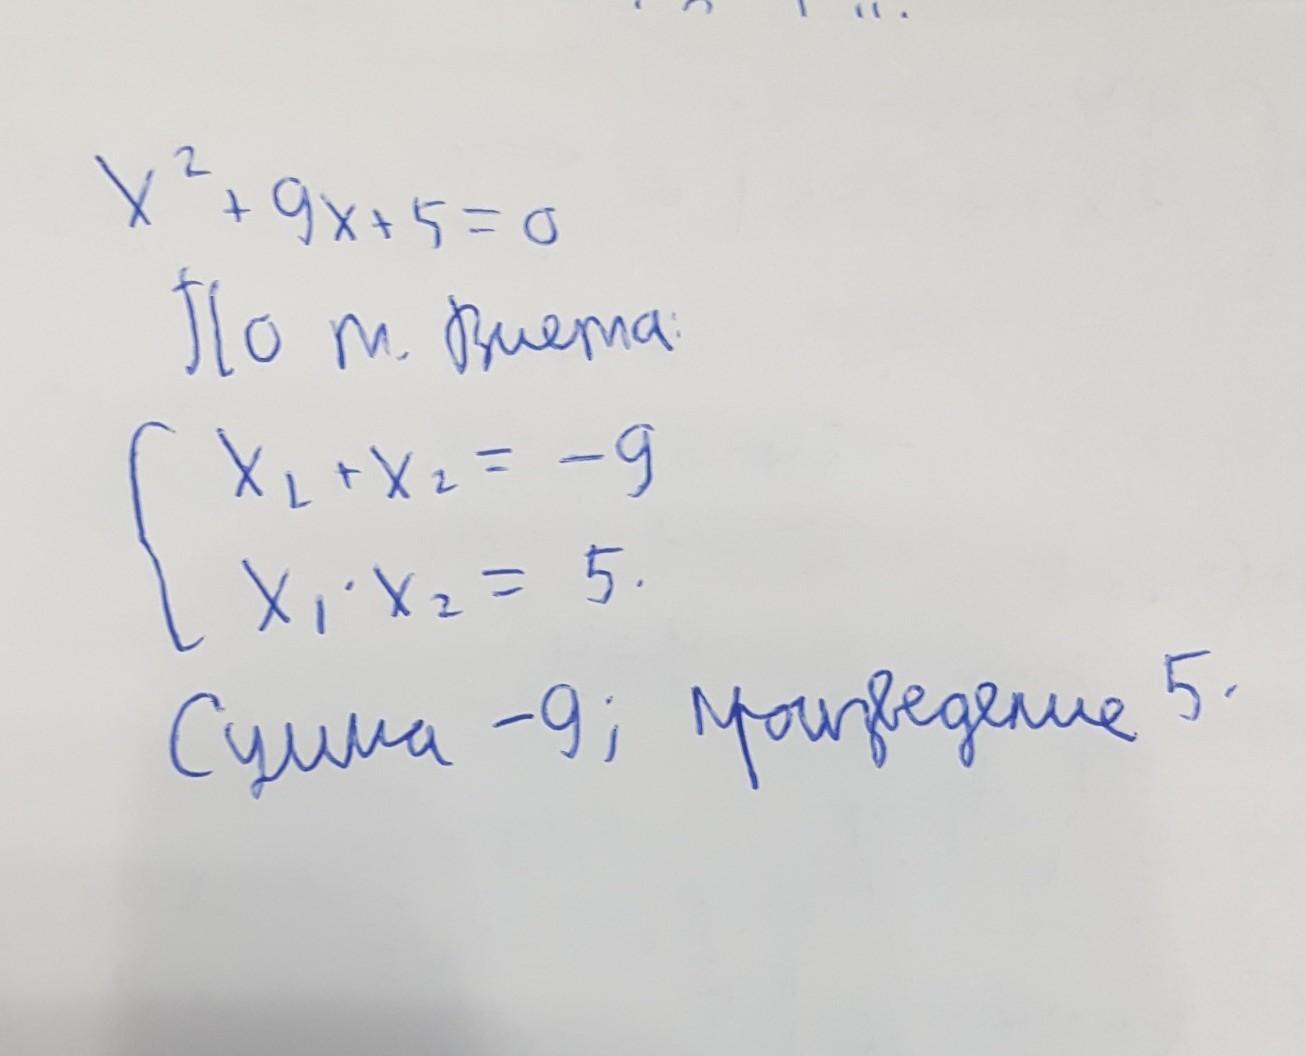 x² + 9x + 5 = 0
По т. Виета:
x₁ + x₂ = -9
x₁ · x₂ = 5.
Сумма -9; произведение 5.